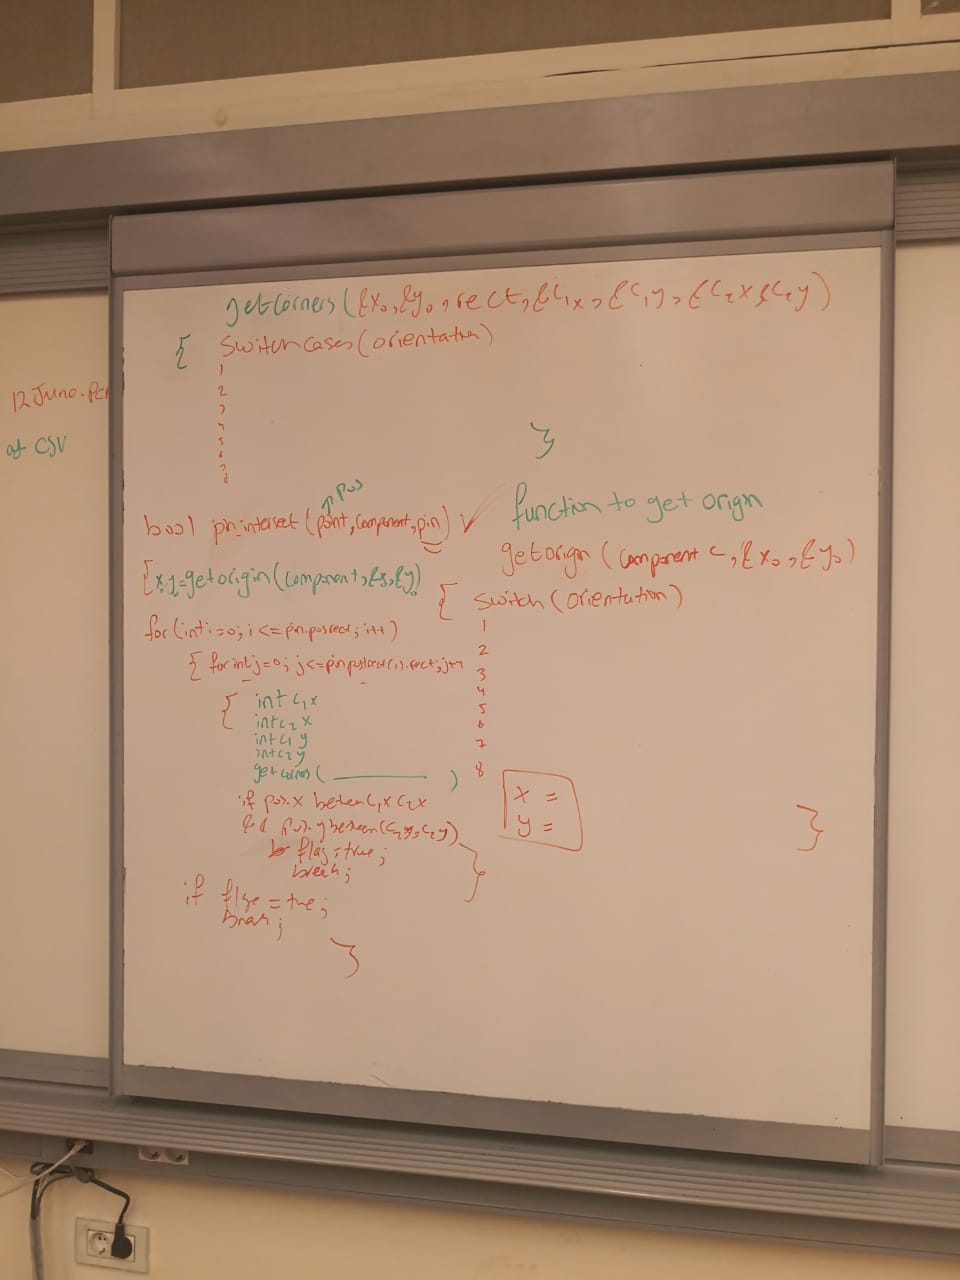 getcorners(&x₀,&y₀,rect,&C₁x,&C₁y,&C₂x,&C₂y)
{ switch cases(orientation)
1
2
3
4
5
6
7
8
}
12 June.
at CSV
pos
bool pin_intersect (point, component, pin) ✓
[x,y=getorigin(component,&x₀,&y₀)
for(int i=0; i<=pin.posrect; i++)
{ for int j=0; j<= .rect; j++
{ int c₁x
int c₂x
int c₁y
int c₂y
getcorners( ________ )
if pos.x between C₁x C₂x
&& pos.y between(C₁y, C₂y)
flag=true;
break;
}
if flag = true;
break;
}
function to get origin
getorigin (component c, &x₀, &y₀)
{ switch(orientation)
1
2
3
4
5
6
7
8
x =
y =
}